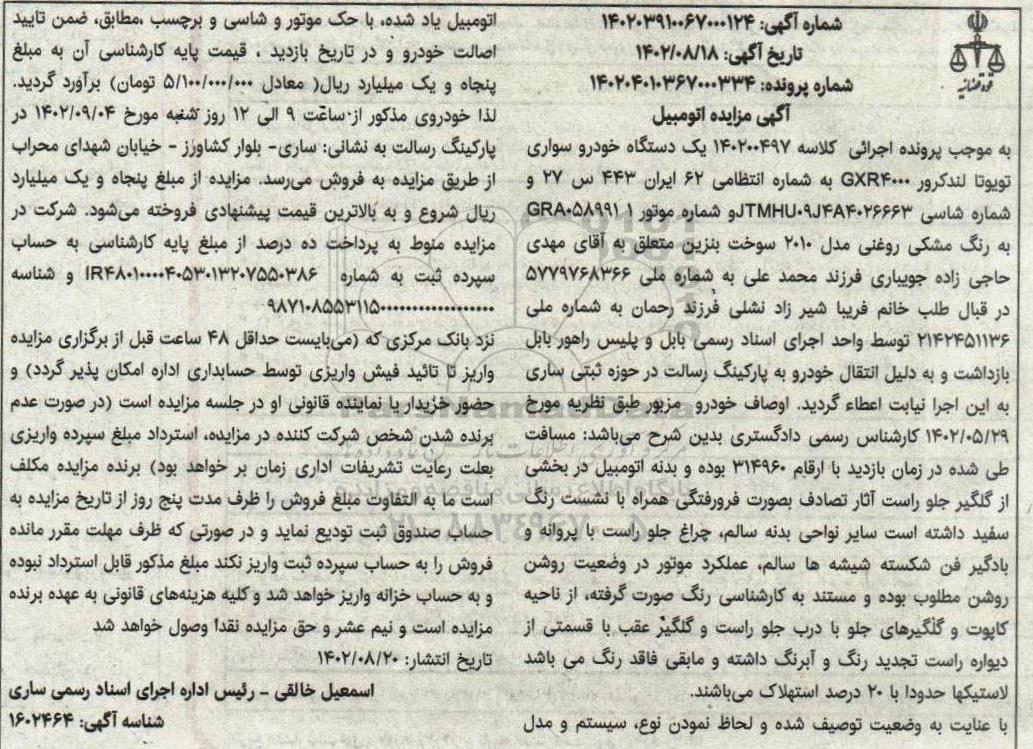 قوه قضائیه
شماره آگهی: ۱۴۰۲۰۳۹۱۰۰۶۷۰۰۰۱۲۴
تاریخ آگهی: ۱۴۰۲/۰۸/۱۸
شماره پرونده: ۱۴۰۲۰۴۰۱۰۳۶۷۰۰۰۳۳۴
آگهی مزایده اتومبیل
به موجب پرونده اجرائی کلاسه ۱۴۰۲۰۰۴۹۷ یک دستگاه خودرو سواری
تویوتا لندکرور GXR۴۰۰۰ به شماره انتظامی ۶۲ ایران ۴۴۳ س ۲۷ و
شماره شاسی JTMHU۰۹J۴A۴۰۲۶۶۶۳و شماره موتور GRA۰۵۸۹۹۱ ۱
به رنگ مشکی روغنی مدل ۲۰۱۰ سوخت بنزین متعلق به آقای مهدی
حاجی زاده جویباری فرزند محمد علی به شماره ملی ۵۷۷۹۷۶۸۳۶۶
در قبال طلب خانم فریبا شیر زاد نشلی فرزند رحمان به شماره ملی
۲۱۴۲۴۵۱۱۳۶ توسط واحد اجرای اسناد رسمی بابل و پلیس راهور بابل
بازداشت و به دلیل انتقال خودرو به پارکینگ رسالت در حوزه ثبتی ساری
به این اجرا نیابت اعطاء گردید. اوصاف خودرو مزبور طبق نظریه مورخ
۱۴۰۲/۰۵/۲۹ کارشناس رسمی دادگستری بدین شرح می‌باشد: مسافت
طی شده در زمان بازدید با ارقام ۳۱۴۹۶۰ بوده و بدنه اتومبیل در بخشی
از گلگیر جلو راست آثار تصادف بصورت فرورفتگی همراه با نشست رنگ
سفید داشته است سایر نواحی بدنه سالم، چراغ جلو راست با پروانه و
بادگیر فن شکسته شیشه ها سالم، عملکرد موتور در وضعیت روشن
روشن مطلوب بوده و مستند به کارشناسی رنگ صورت گرفته، از ناحیه
کاپوت و گلگیرهای جلو با درب جلو راست و گلگیر عقب با قسمتی از
دیواره راست تجدید رنگ و آبرنگ داشته و مابقی فاقد رنگ می باشد
لاستیکها حدودا با ۲۰ درصد استهلاک می‌باشند.
با عنایت به وضعیت توصیف شده و لحاظ نمودن نوع، سیستم و مدل
اتومبیل یاد شده، با حک موتور و شاسی و برچسب ،مطابق، ضمن تایید
اصالت خودرو و در تاریخ بازدید ، قیمت پایه کارشناسی آن به مبلغ
پنجاه و یک میلیارد ریال( معادل ۵/۱۰۰/۰۰۰/۰۰۰ تومان) برآورد گردید.
لذا خودروی مذکور از ساعت ۹ الی ۱۲ روز شنبه مورخ ۱۴۰۲/۰۹/۰۴ در
پارکینگ رسالت به نشانی: ساری- بلوار کشاورز - خیابان شهدای محراب
از طریق مزایده به فروش می‌رسد. مزایده از مبلغ پنجاه و یک میلیارد
ریال شروع و به بالاترین قیمت پیشنهادی فروخته می‌شود. شرکت در
مزایده منوط به پرداخت ده درصد از مبلغ پایه کارشناسی به حساب
سپرده ثبت به شماره IR۴۸۰۱۰۰۰۰۴۰۵۳۰۱۳۲۰۷۵۵۰۳۸۶ و شناسه
نزد بانک مرکزی که (می‌بایست حداقل ۴۸ ساعت قبل از برگزاری مزایده
واریز تا تائید فیش واریزی توسط حسابداری اداره امکان پذیر گردد) و
حضور خریدار یا نماینده قانونی او در جلسه مزایده است (در صورت عدم
برنده شدن شخص شرکت کننده در مزایده، استرداد مبلغ سپرده واریزی
بعلت رعایت تشریفات اداری زمان بر خواهد بود) برنده مزایده مکلف
است ما به التفاوت مبلغ فروش را ظرف مدت پنج روز از تاریخ مزایده به
حساب صندوق ثبت تودیع نماید و در صورتی که ظرف مهلت مقرر مانده
فروش را به حساب سپرده ثبت واریز نکند مبلغ مذکور قابل استرداد نبوده
و به حساب خزانه واریز خواهد شد و کلیه هزینه‌های قانونی به عهده برنده
مزایده است و نیم عشر و حق مزایده نقدا وصول خواهد شد
تاریخ انتشار: ۱۴۰۲/۰۸/۲۰
اسمعیل خالقی - رئیس اداره اجرای اسناد رسمی ساری
شناسه آگهی: ۱۶۰۲۴۶۴